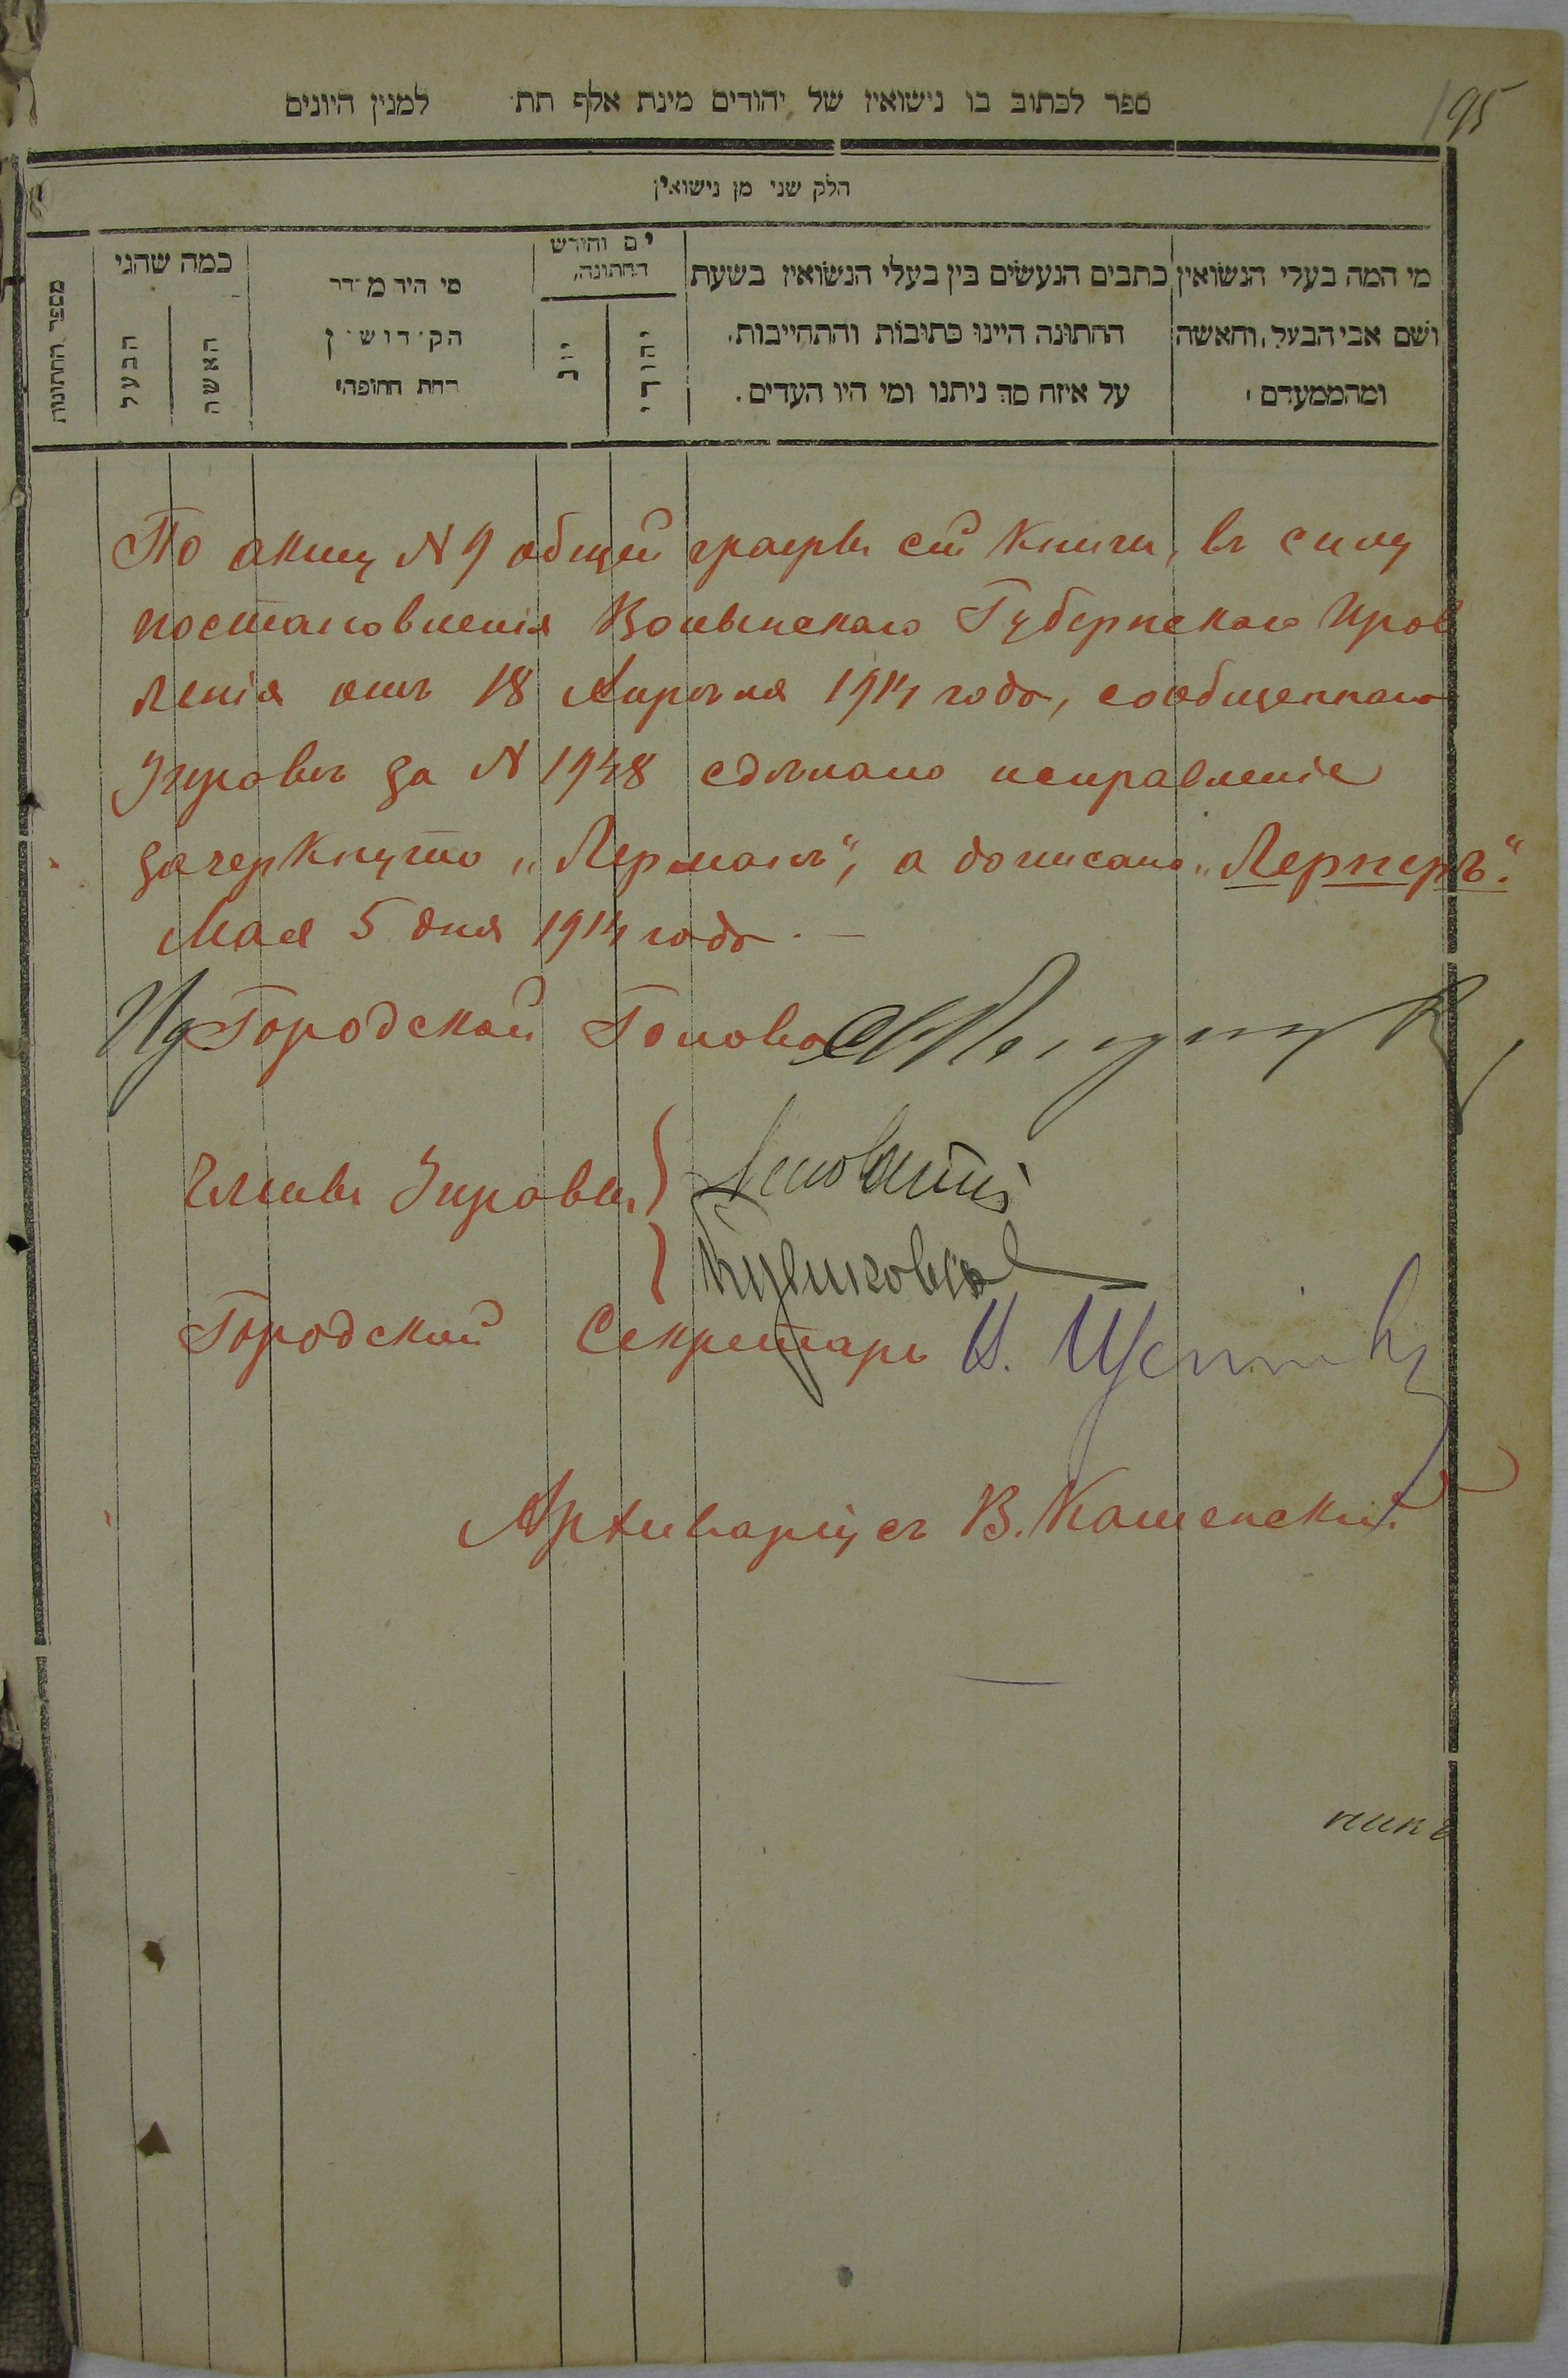 195
ספר לכתוב בו נישואין של יהודים מינת אלף תת למנין היונים
חלק שני מן נישואין
מספר החתונות
כמה שהני
הבעל
האשה
מי היה מסדר
הקדושין
תחת החופה
יום וחודש
החתונה
יונ
יהודי
כתבים הנעשים בין בעלי הנשואין בשעת
החתונה היינו כתובות והתחייבות.
על איזה סך ניתנו ומי היו העדים.
מי המה בעלי הנשואין
ושם אבי הבעל, והאשה
ומהממעדם
По акту N 9 общей графы сей книги, въ силу
постановленія Волынскаго Губернскаго Прав
ленія отъ 18 Апрѣля 1914 года, сообщеннаго
Управѣ за N 1948 сдѣлано исправленіе
зачеркнуто „Лерманъ“, а дописано „Лернеръ“.
Мая 5 дня 1914 года. —
Ид Городской Голова
Члены Управы
Городской Секретарь
Архиваріусъ В. Кашенскій
никъ